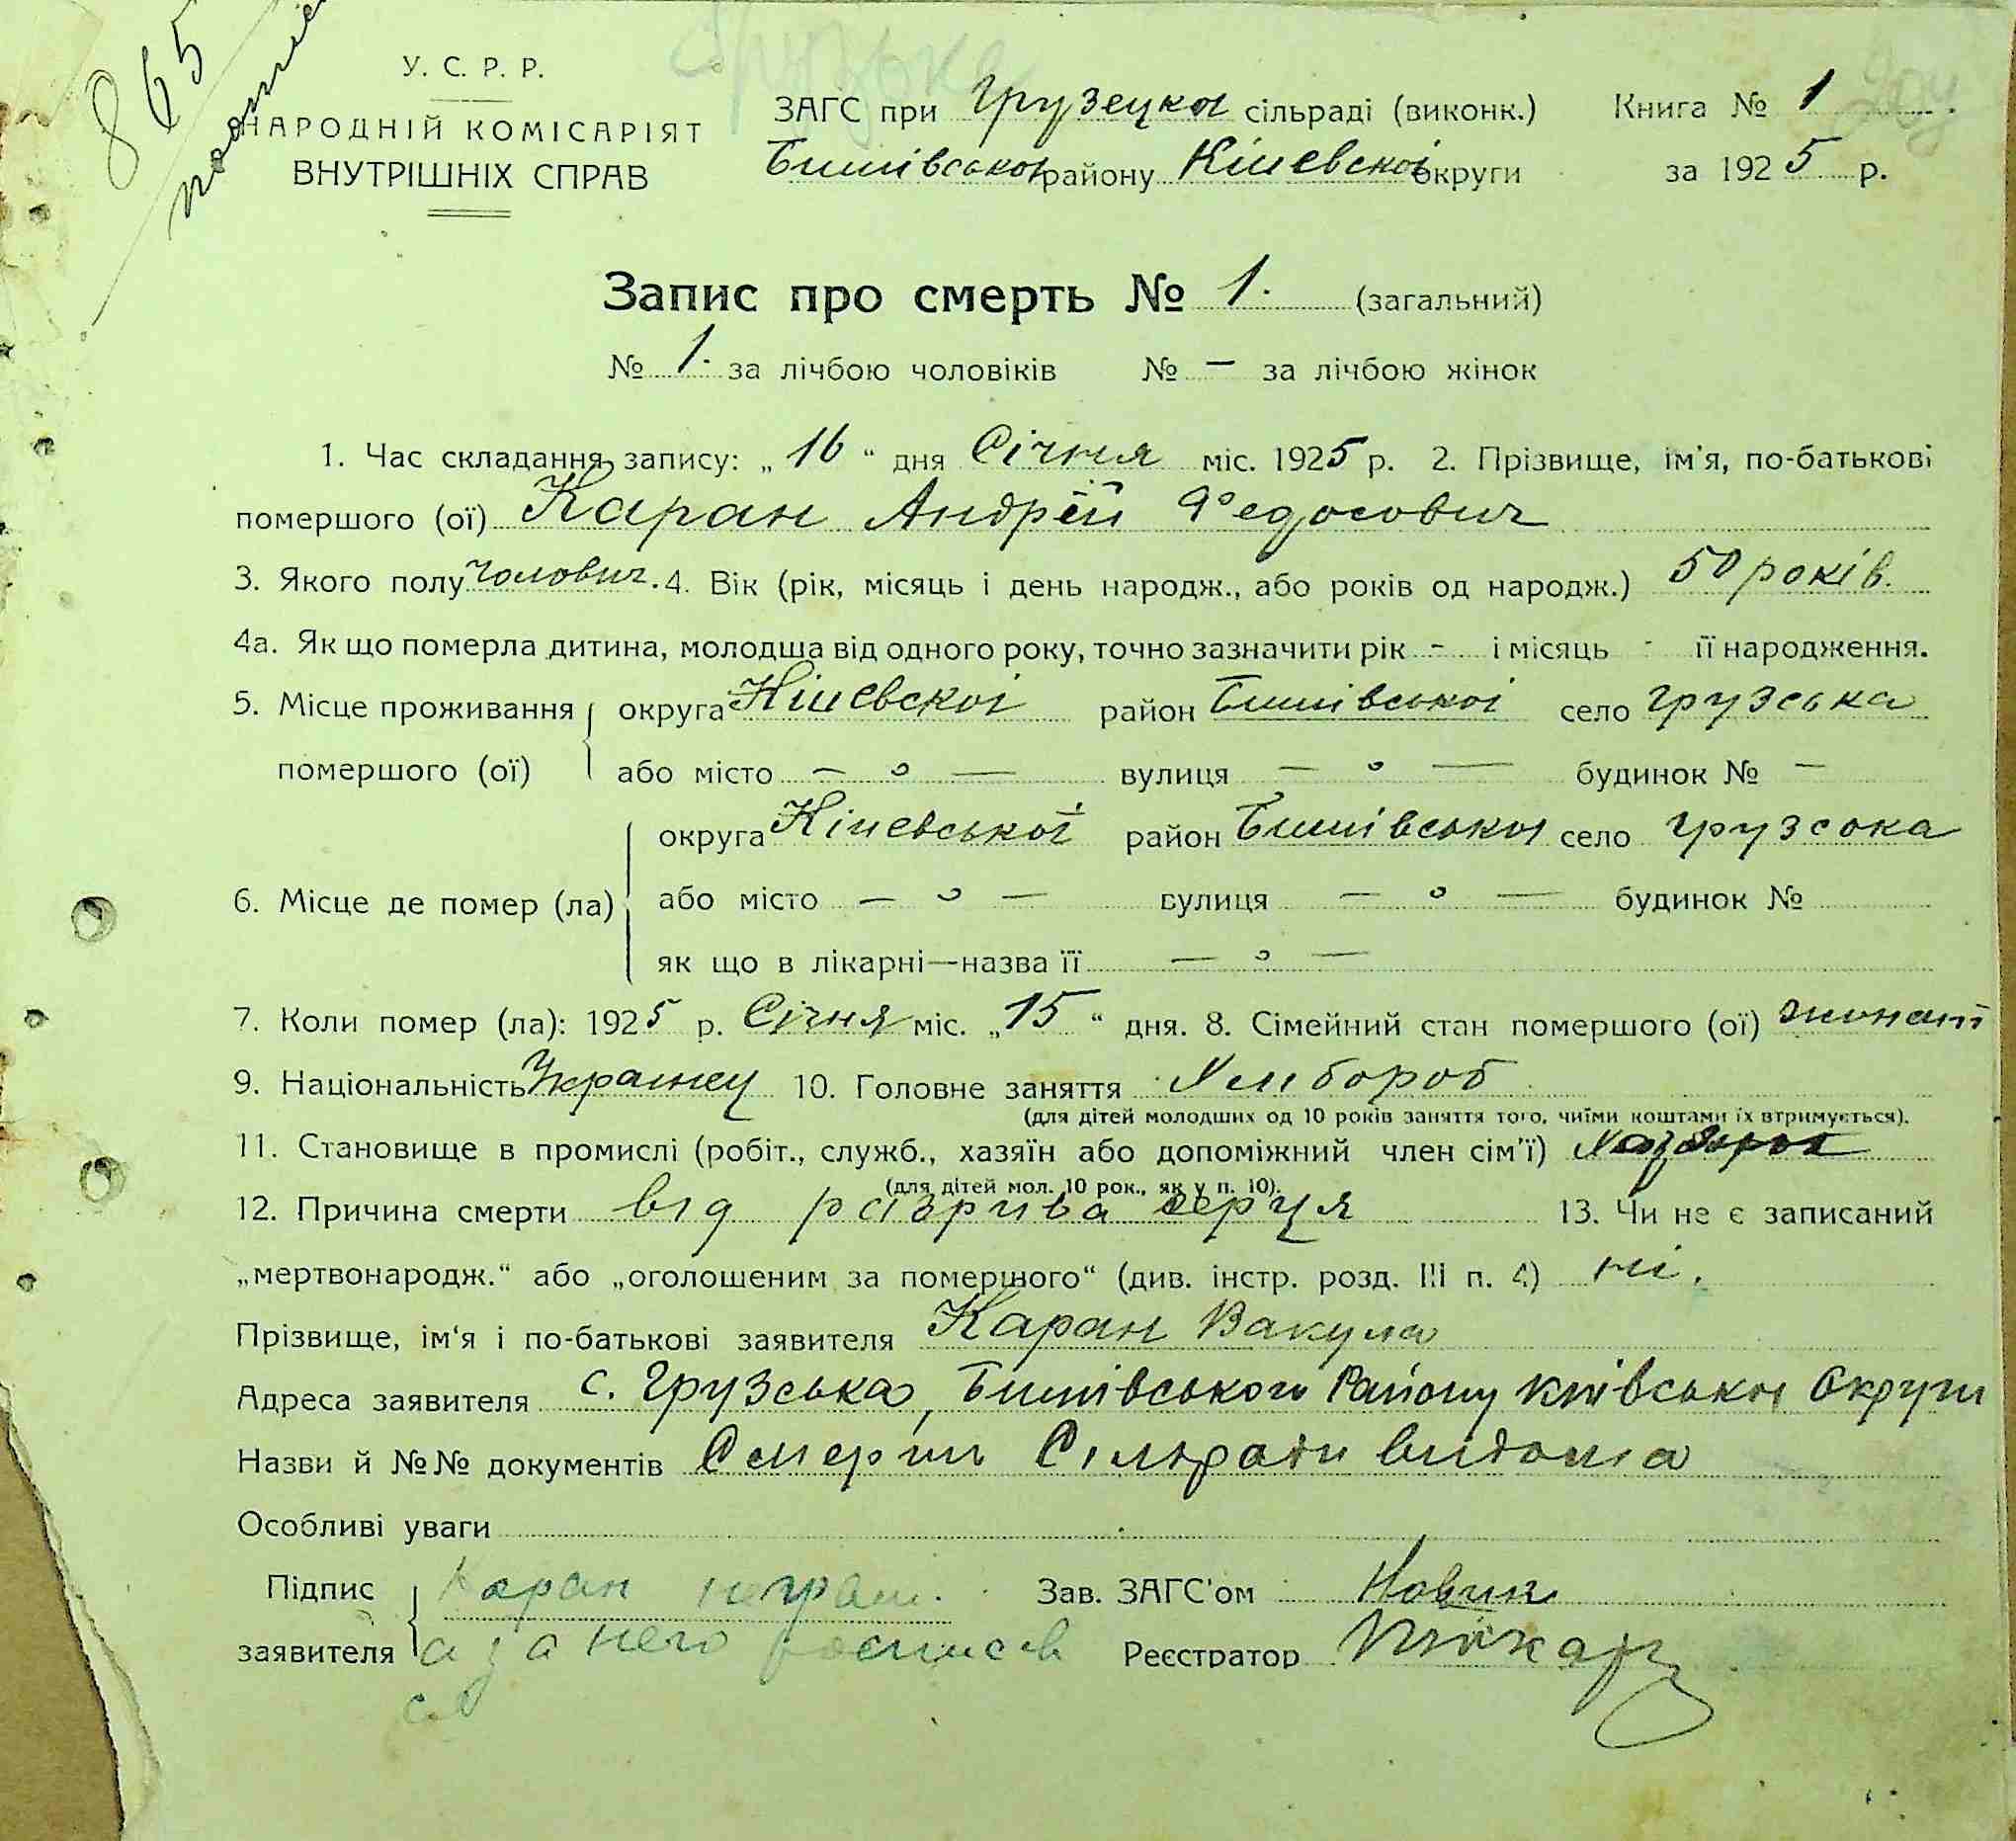 865
Грузька
У. С. Р. Р.
НАРОДНІЙ КОМІСАРІЯТ
ВНУТРІШНІХ СПРАВ
ЗАГС при Грузецкоі сільраді (виконк.) Книга № 1
Бишівськоі району Кіиевскоі округи за 1925 р.
Запис про смерть № 1. (загальний)
№ 1. за лічбою чоловіків № — за лічбою жінок
1. Час складання запису: „16“ дня Січня міс. 1925 р. 2. Прізвище, ім'я, по-батькові
помершого (ої) Каран Андрей Федосович
3. Якого полу чолович. 4. Вік (рік, місяць і день народж., або років од народж.) 50 років.
4а. Як що померла дитина, молодша від одного року, точно зазначити рік - і місяць - її народження.
5. Місце проживання округа Кіиевскоі район Бишівськоі село Грузська
помершого (ої) або місто — " — вулиця — " — будинок № —
округа Кіиевської район Бишівськоі село Грузська
6. Місце де помер (ла) або місто — " — вулиця — " — будинок №
як що в лікарні—назва її — " —
7. Коли помер (ла): 1925 р. Січня міс. „15“ дня. 8. Сімейний стан помершого (ої) жонат
9. Національність Украинец 10. Головне заняття Хлибороб
(для дітей молодших од 10 років заняття того, чиїми коштами їх втримується).
11. Становище в промислі (робіт., служб., хазяїн або допоміжний член сім'ї)
(для дітей мол. 10 рок., як у п. 10).
12. Причина смерти від разрива серця 13. Чи не є записаний
„мертвонародж.“ або „оголошеним за помершого“ (див. інстр. розд. III п. 4) ні.
Прізвище, ім'я і по-батькові заявителя Каран Вакула
Адреса заявителя с. Грузська, Бишівського Району Київськоі Округи
Назви й №№ документів Смерть Сільради видома
Особливі уваги
Підпис Каран неграм. Зав. ЗАГС'ом Новик
заявителя а за него росписався Реєстратор